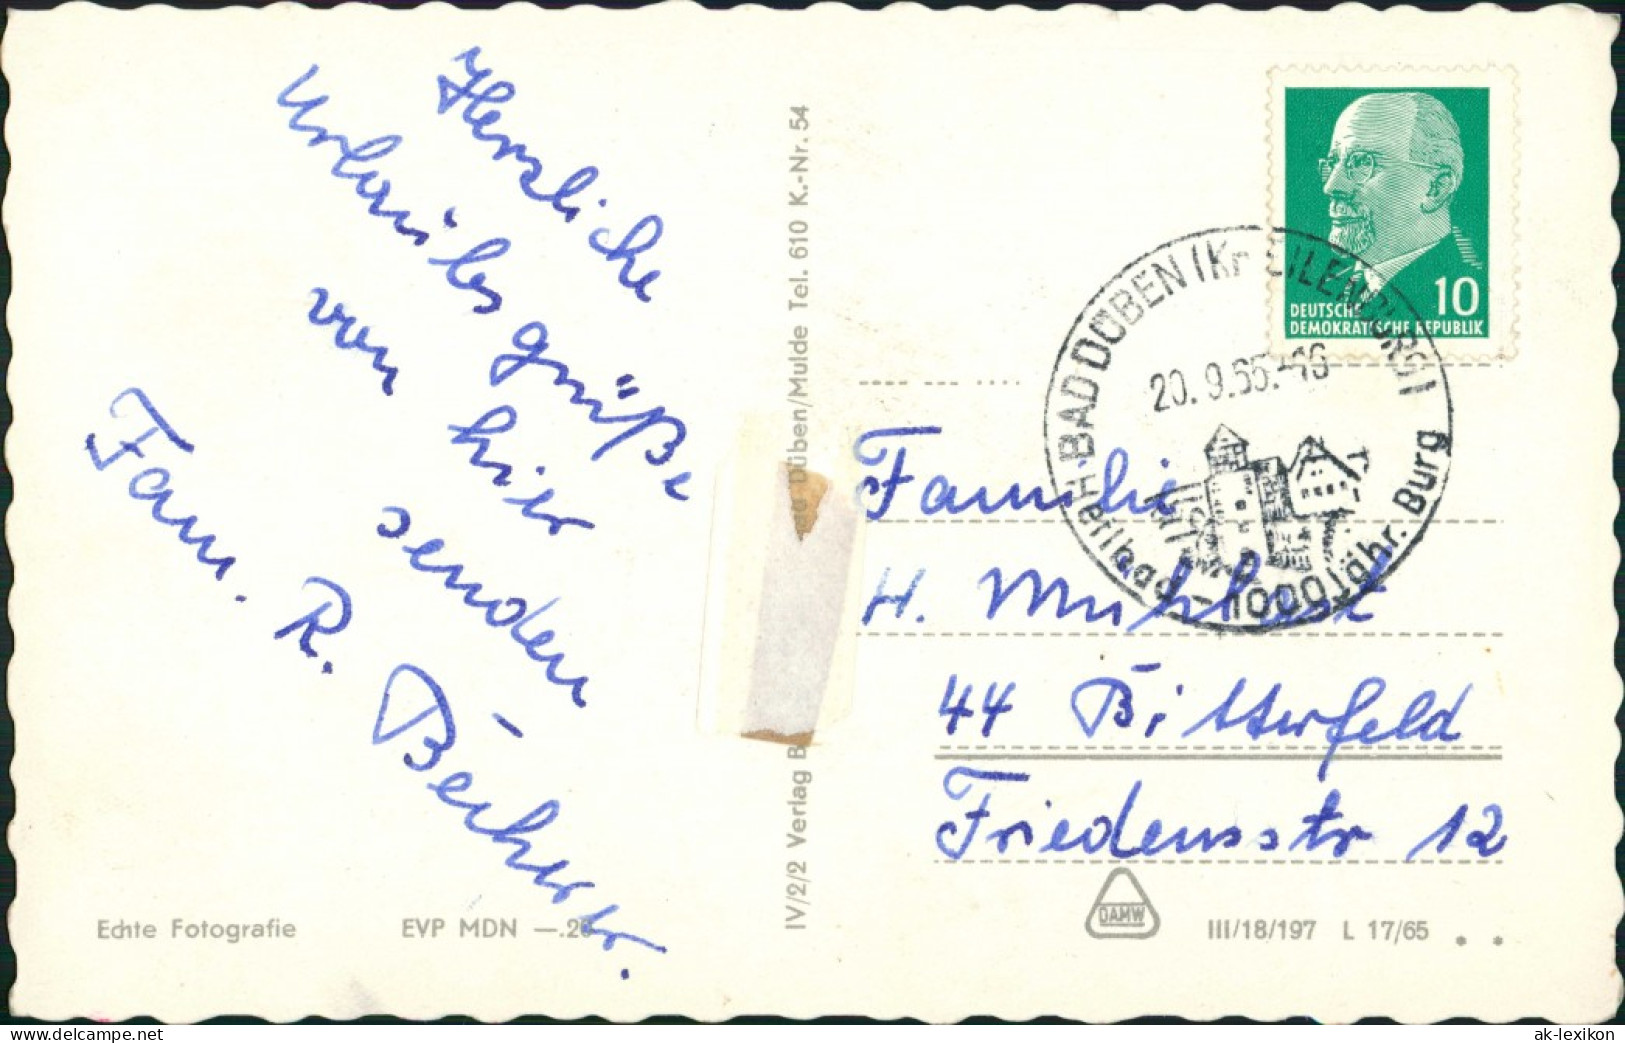 Herzliche
Urlaubsgrüße
von hier
senden
Fam. R.
Echte Fotografie
EVP MDN —.20
IV/2/2 Verlag Bad Düben/Mulde Tel. 610 K.-Nr. 54
10
DEUTSCHE
DEMOKRATISCHE REPUBLIK
BAD DÜBEN (Kr EILENBURG)
20.9.65.-16
Heilbad - 1000Jähr. Burg
Familie
H.
44 Bitterfeld
Friedensstr 12
DAMW
III/18/197 L 17/65
delcampe.net
ak-lexikon